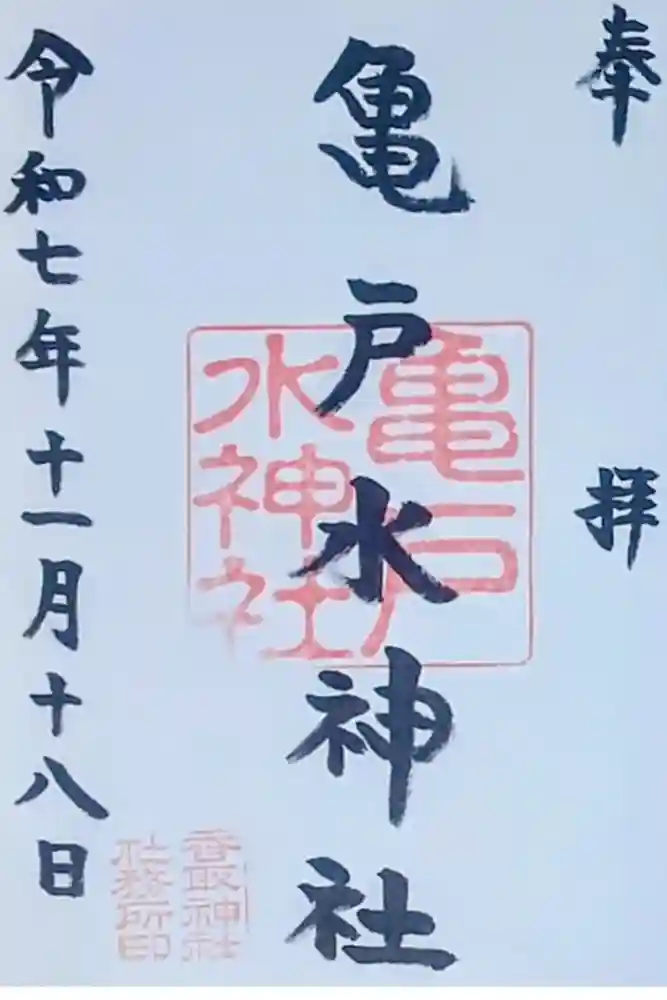 奉拝
亀戸水神社
令和七年十一月十八日
亀戸
水神社
香取神社
社務所印